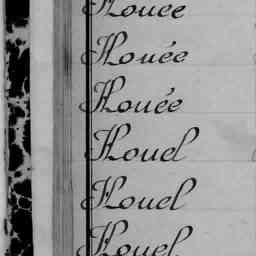 Houée
Houée
Houée
Houel
Houel
Houel